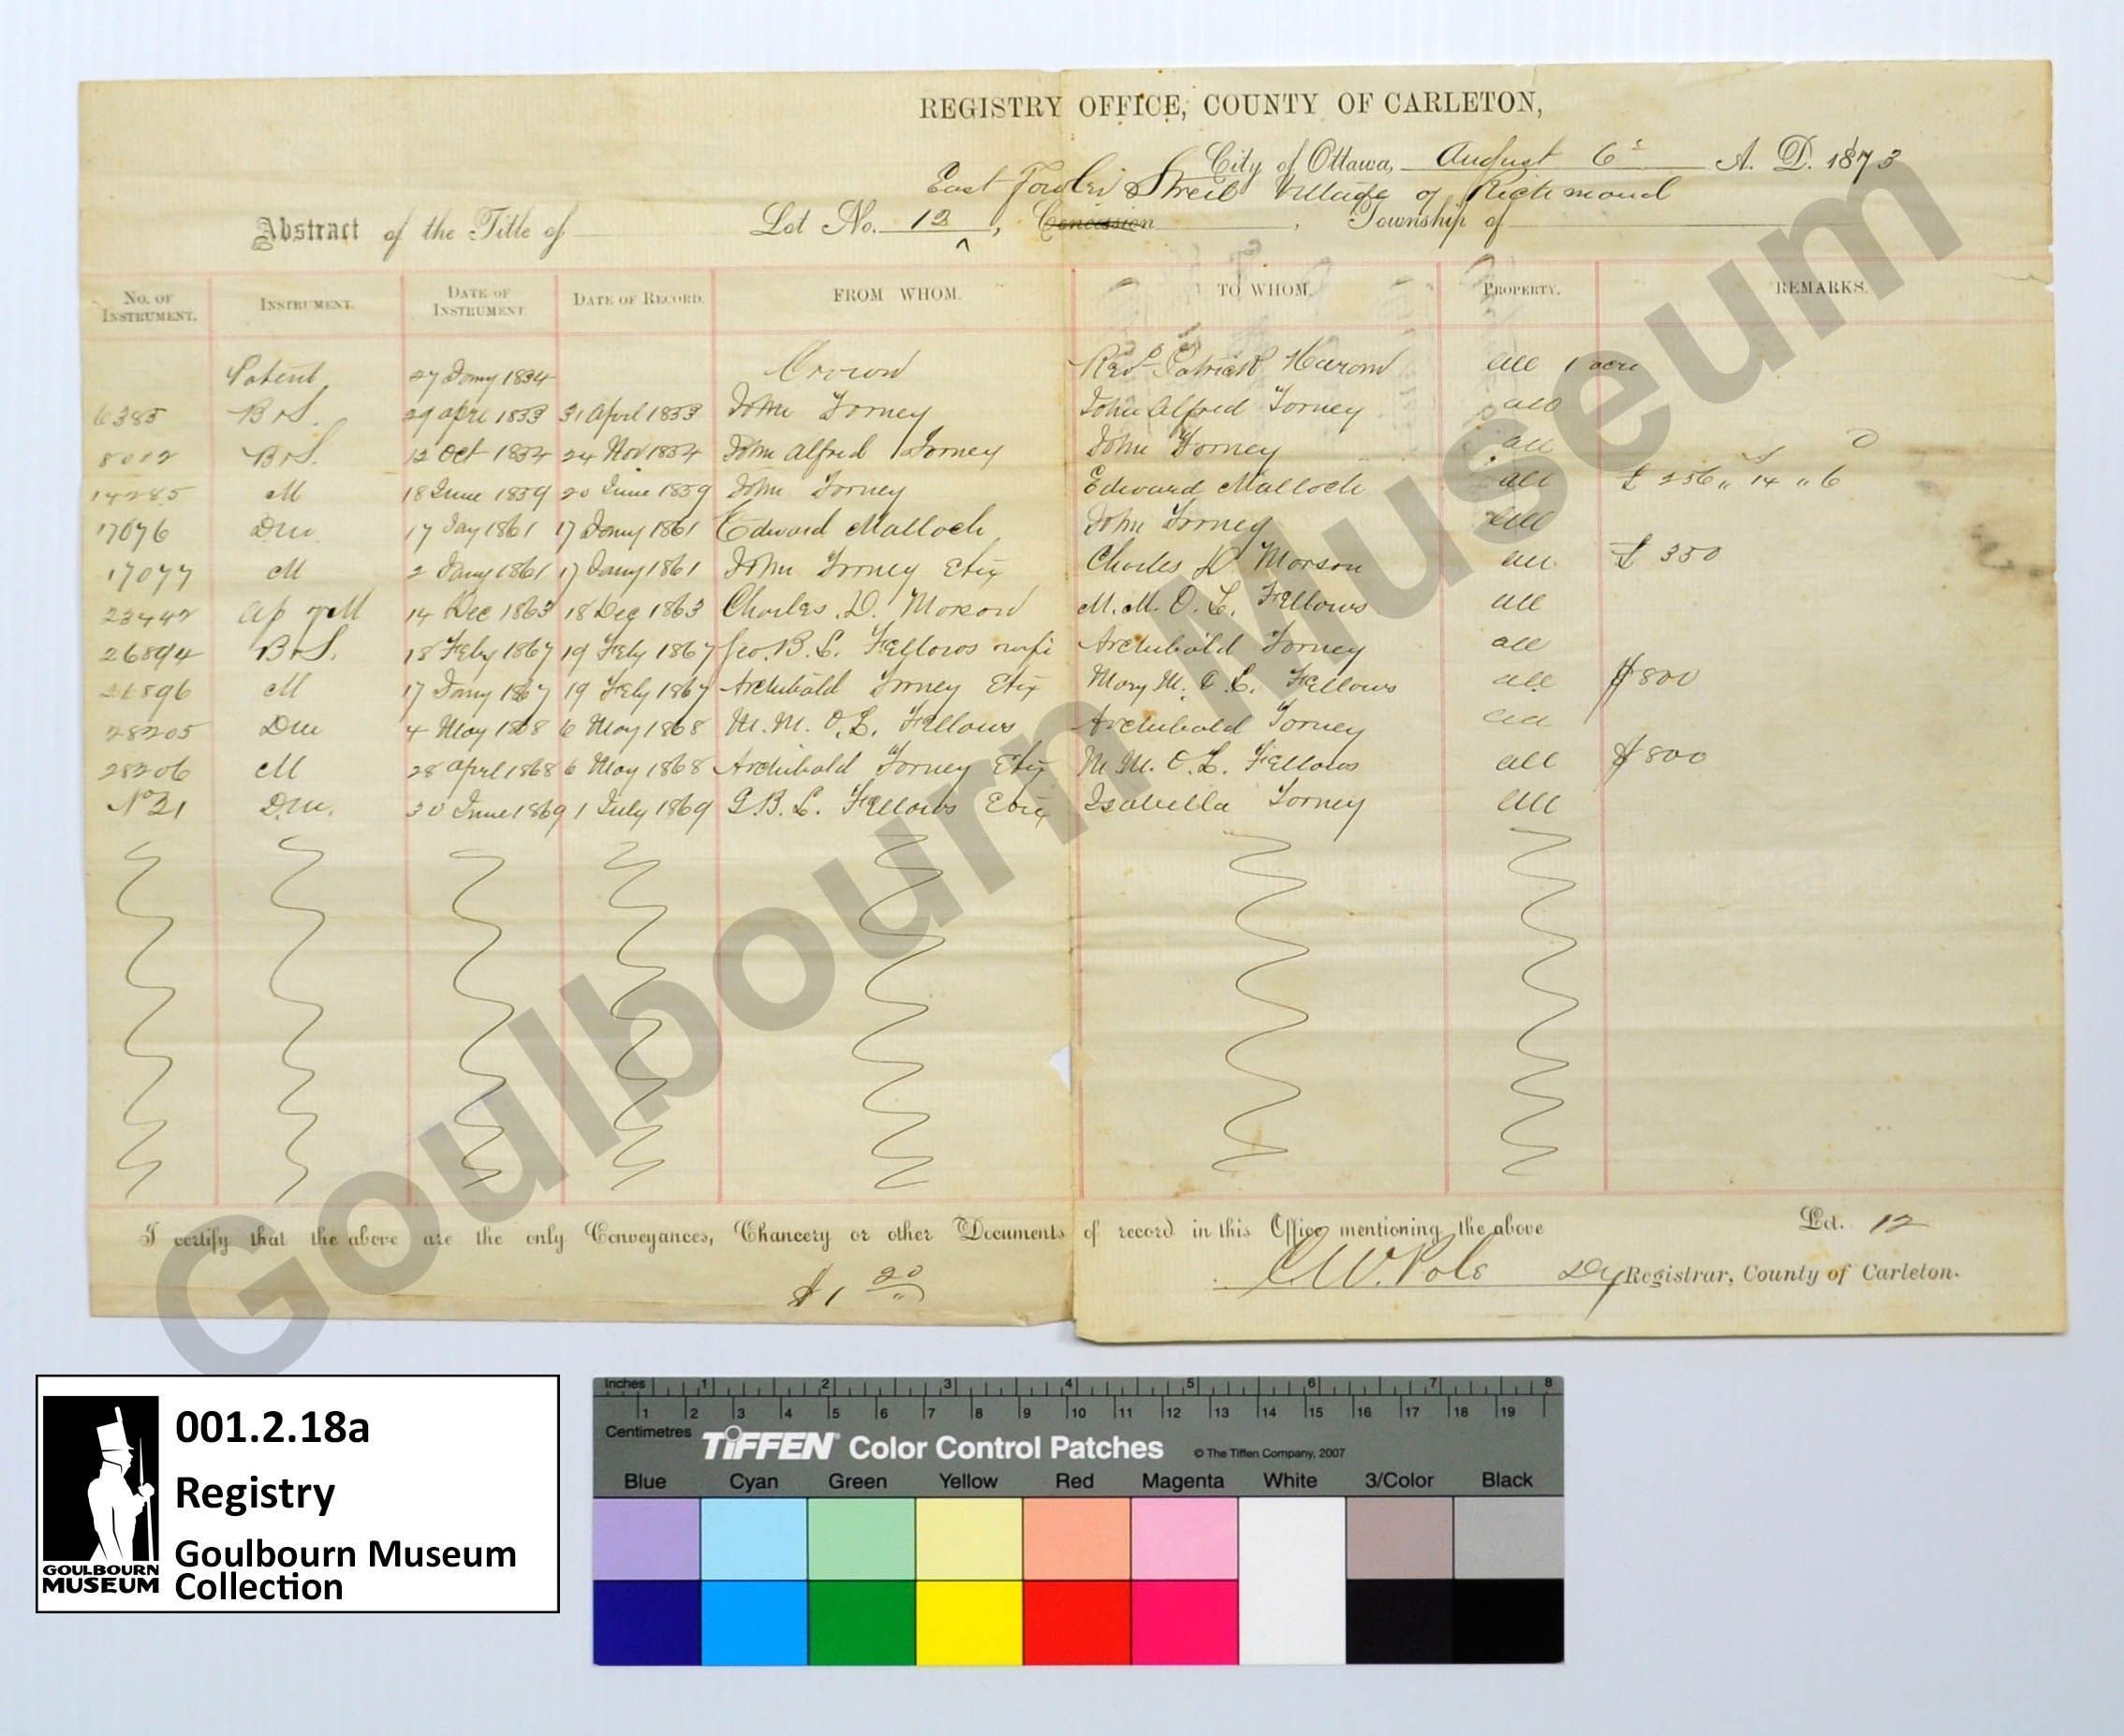 REGISTRY OFFICE, COUNTY OF CARLETON,
City of Ottawa, August 6 A. D. 1873
East Street Village of Richmond
Abstract of the Title of Lot No. 12, Concession Township of
No. of Instrument. Instrument. Date of Instrument Date of Record. FROM WHOM. TO WHOM. Property. REMARKS.
Patent 27 1834 Crown Revd Patrick all 1 acre
6385 B&S. John Torney John Alfred Torney all
8012 B&S. 12 Oct 24 Nov John Alfred Torney John Torney all
14285 M 18 June 1859 20 June 1859 John Torney Edward Malloch all £ 256 " 14 " 6
17076 Dm 17 Jay 1861 17 Jany 1861 Edward Malloch John Torney all
17077 M 2 Jany 1861 17 Jany 1861 John Torney Etux Charles D Morson all £ 350
23442 M 14 Dec 1863 18 Dec 1863 Charles D. Morson M. M. O. L. Fellows all
26894 B&S. 18 Feby 1867 19 Feby 1867 Geo. B. L. Fellows Archibald Torney all
26896 M 17 Jany 1867 19 Feby 1867 Archibald Torney Etux Mary M. O. L. Fellows all $800
28205 Dm 4 May 1868 6 May 1868 M. M. O. L. Fellows Archibald Torney all
28206 M 28 April 1868 6 May 1868 Archibald Torney Etux M. M. O. L. Fellows all $800
No 21 Dm. 30 June 1869 1 July 1869 G. B. L. Fellows Etux Isabella Torney all
I certify that the above are the only Conveyances, Chancery or other Documents of record in this Office mentioning the above Lot. 12
$1 20 C W. Dy Registrar, County of Carleton.
Goulbourn Museum
001.2.18a
Registry
Goulbourn Museum
Collection
GOULBOURN
MUSEUM
Inches 1 2 3 4 5 6 7 8
1 2 3 4 5 6 7 8 9 10 11 12 13 14 15 16 17 18 19
Centimetres
TIFFEN® Color Control Patches © The Tiffen Company, 2007
Blue Cyan Green Yellow Red Magenta White 3/Color Black